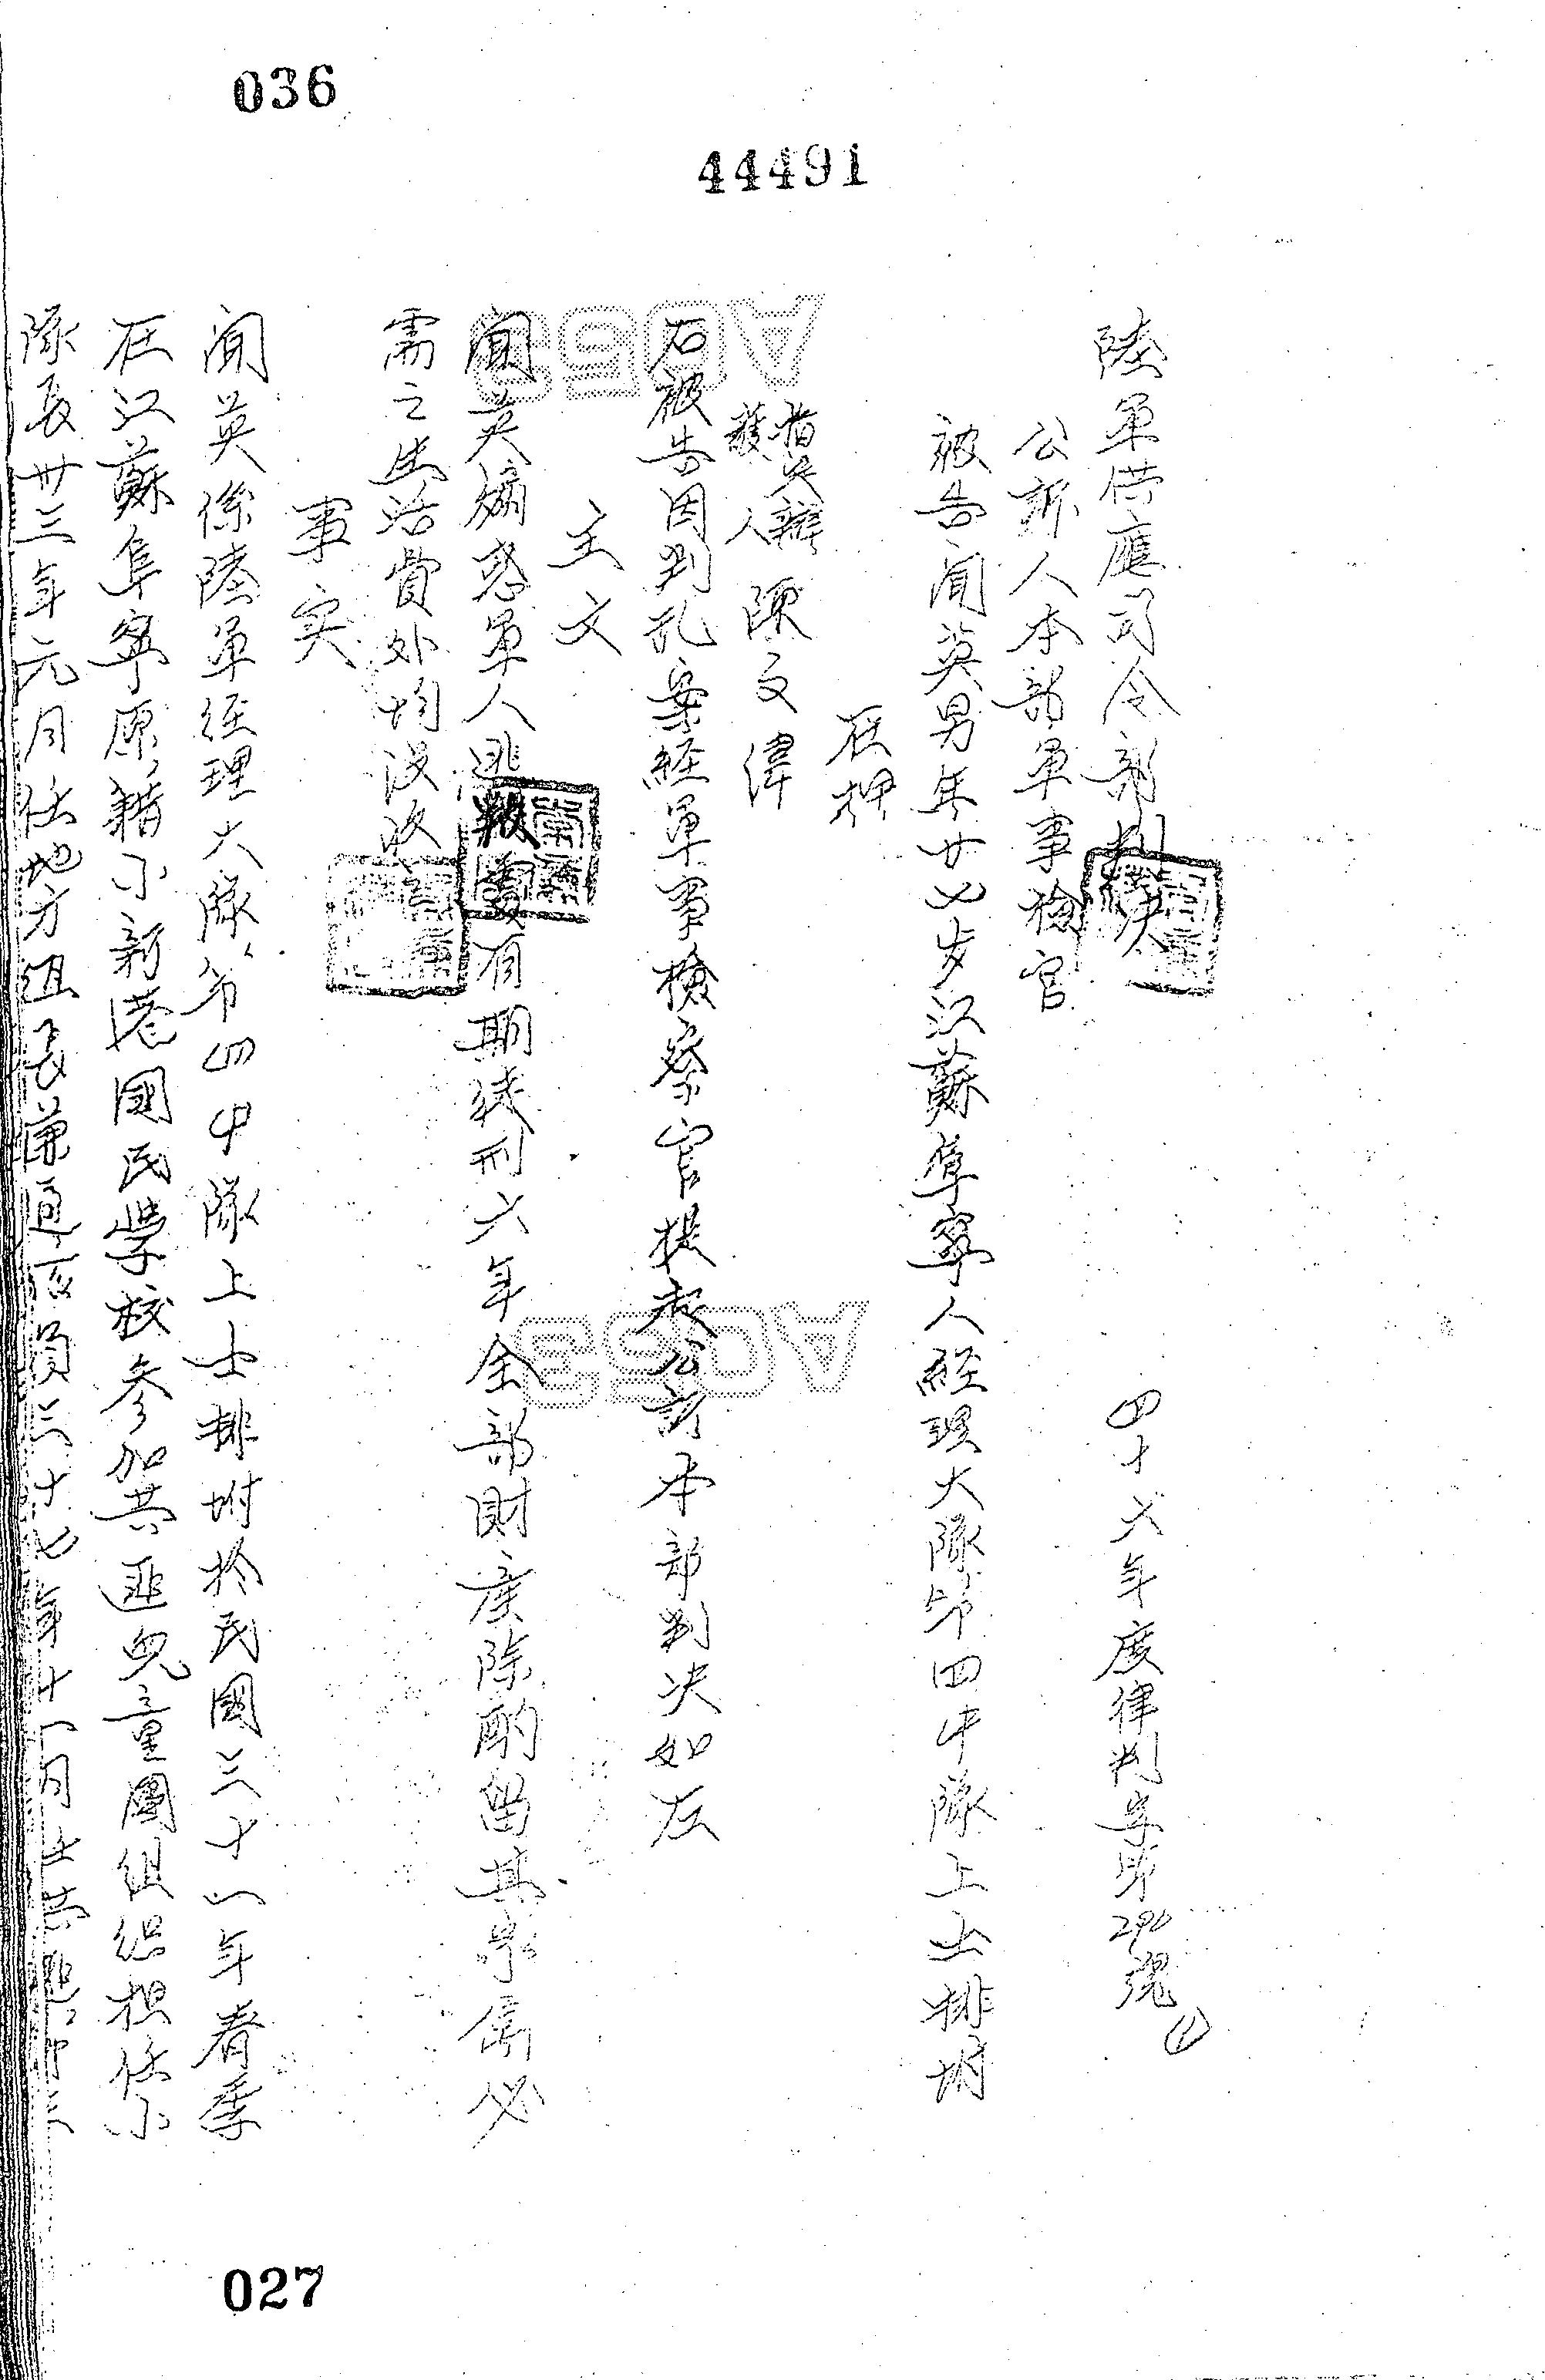 036
44491
陸軍供應司令部判決
四十六年度律判字第290號
公訴人本部軍事檢官
被告聞英男年廿七岁江蘇阜寧人經理大隊第四中隊上士排附
在押
指定辯護人 陳文偉
右被告因判乱案經軍事檢察官提起公訴本部判决如左
主文
聞英煽惑軍人逃叛處有期徒刑六年全部財產除酌留其家屬必
需之生活費外均沒收
事实
聞英係陸軍經理大隊第四中隊上士排附於民國三十一年春季
在江蘇阜寧原籍小新港國民學校参加共匪兒童團組織担任小
隊長卅三年元月任地方組長兼通訊員三十七年十一月
A053
A053
027